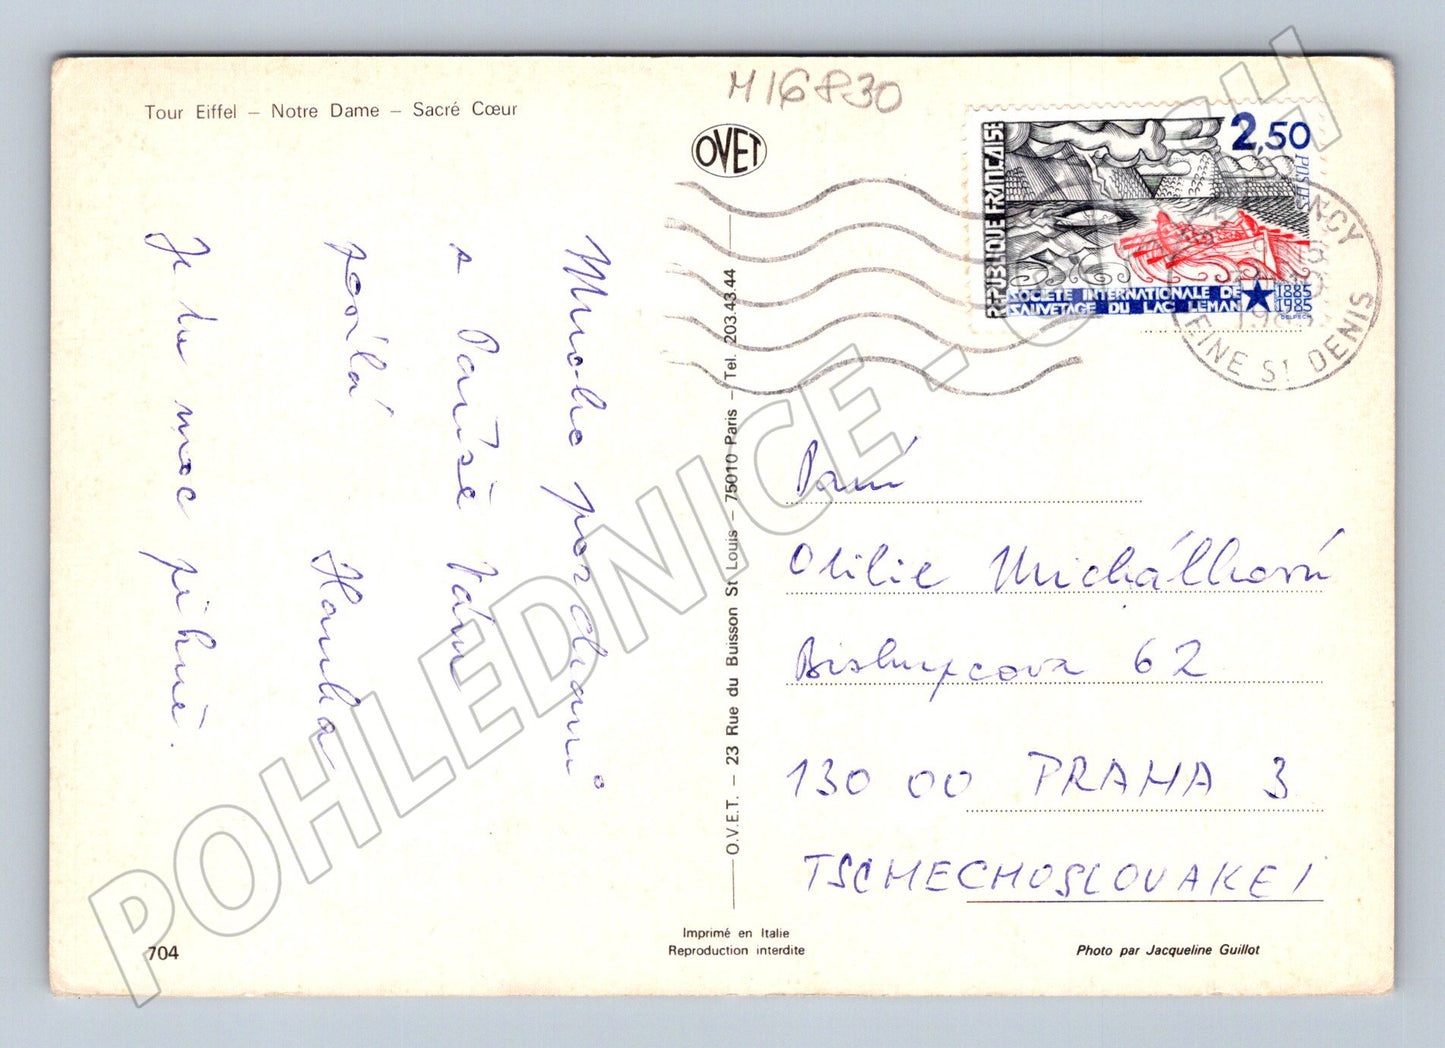 Tour Eiffel – Notre Dame – Sacré Cœur
M16830
OVET
2,50
POSTES
REPUBLIQUE FRANÇAISE
SOCIETE INTERNATIONALE DE
SAUVETAGE DU LAC LEMAN
1885
1985
DELPECH
NCY
EINE ST DENIS
Mnoho pozdravů
z Paříže Vám
posílá Hanka
Je tu moc pěkně.
O.V.E.T. – 23 Rue du Buisson St Louis – 75010 Paris – Tel. 203.43.44
Paní
Otilie Michálková
Biskupcova 62
130 00 PRAHA 3
TSCHECHOSLOVAKEI
704
Imprimé en Italie
Reproduction interdite
Photo par Jacqueline Guillot
POHLEDNICE - SBH